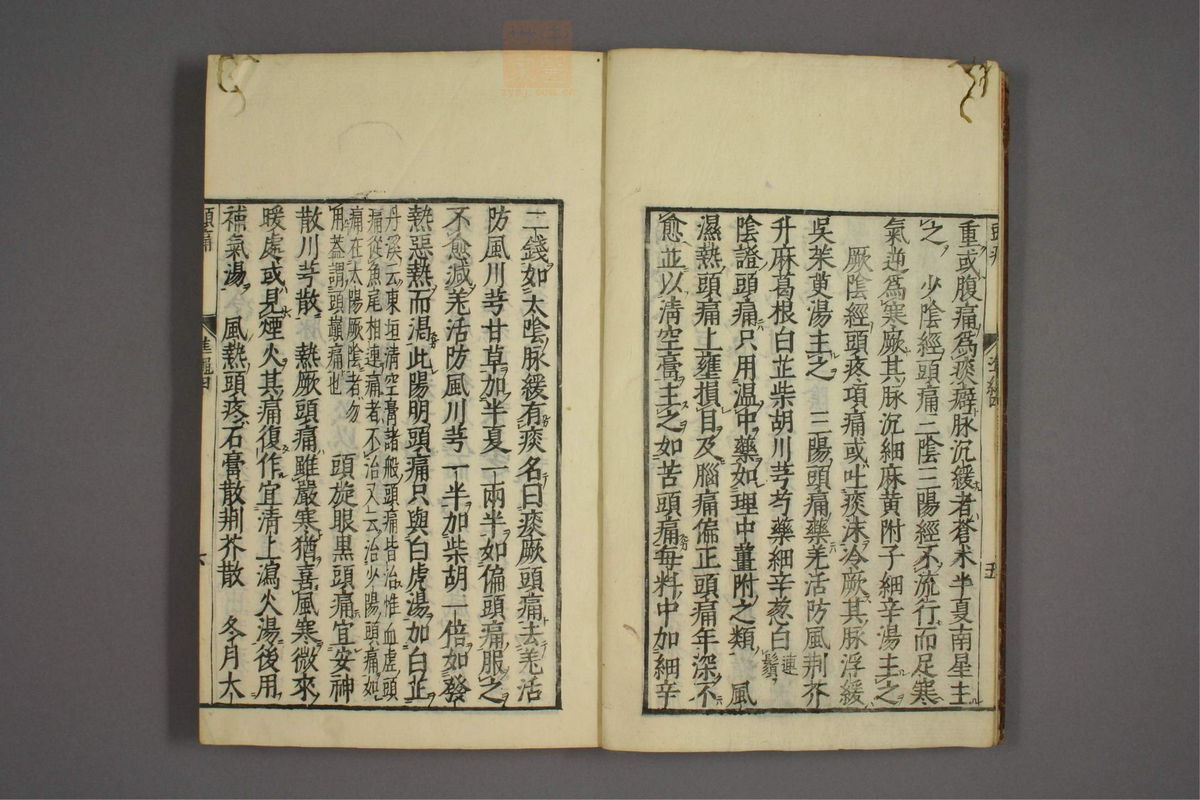 重或腹痛爲痰癖脉沉緩者蒼术半夏南星主
之　少陰經頭痛三陰三陽經不流行而足寒
氣逆爲寒厥其脉沉細麻黄附子細辛湯主之
厥陰經頭疼項痛或吐痰沫冷厥其脉浮緩
吳茱萸湯主之　三陽頭痛藥羌活防風荆芥
升麻葛根白芷柴胡川芎芍藥細辛葱白連鬚
陰證頭痛只用温中藥如理中薑附之類　風
濕熱頭痛上壅損目及腦痛偏正頭痛年深不
愈並以清空膏主之如苦頭痛每料中加細辛
二錢如太陰脉緩有痰名曰痰厥頭痛去羌活
防風川芎甘草加半夏一兩半如偏頭痛服之
不愈減羌活防風川芎一半加柴胡一倍如發
熱惡熱而渇此陽明頭痛只與白虎湯加白芷
丹溪云東垣清空膏諸般頭痛皆治惟血虚頭
痛從魚尾相連痛者不治又云治少陽頭痛如
痛在太陽厥陰者勿
用蓋謂頭巔痛也
頭旋眼黒頭痛宜安神
散川芎散　熱厥頭痛雖嚴寒猶喜風寒微來
暖處或見煙火其痛復作宜清上瀉火湯後用
補氣湯　風熱頭疼石膏散荆芥散　冬月大
頭痛
六